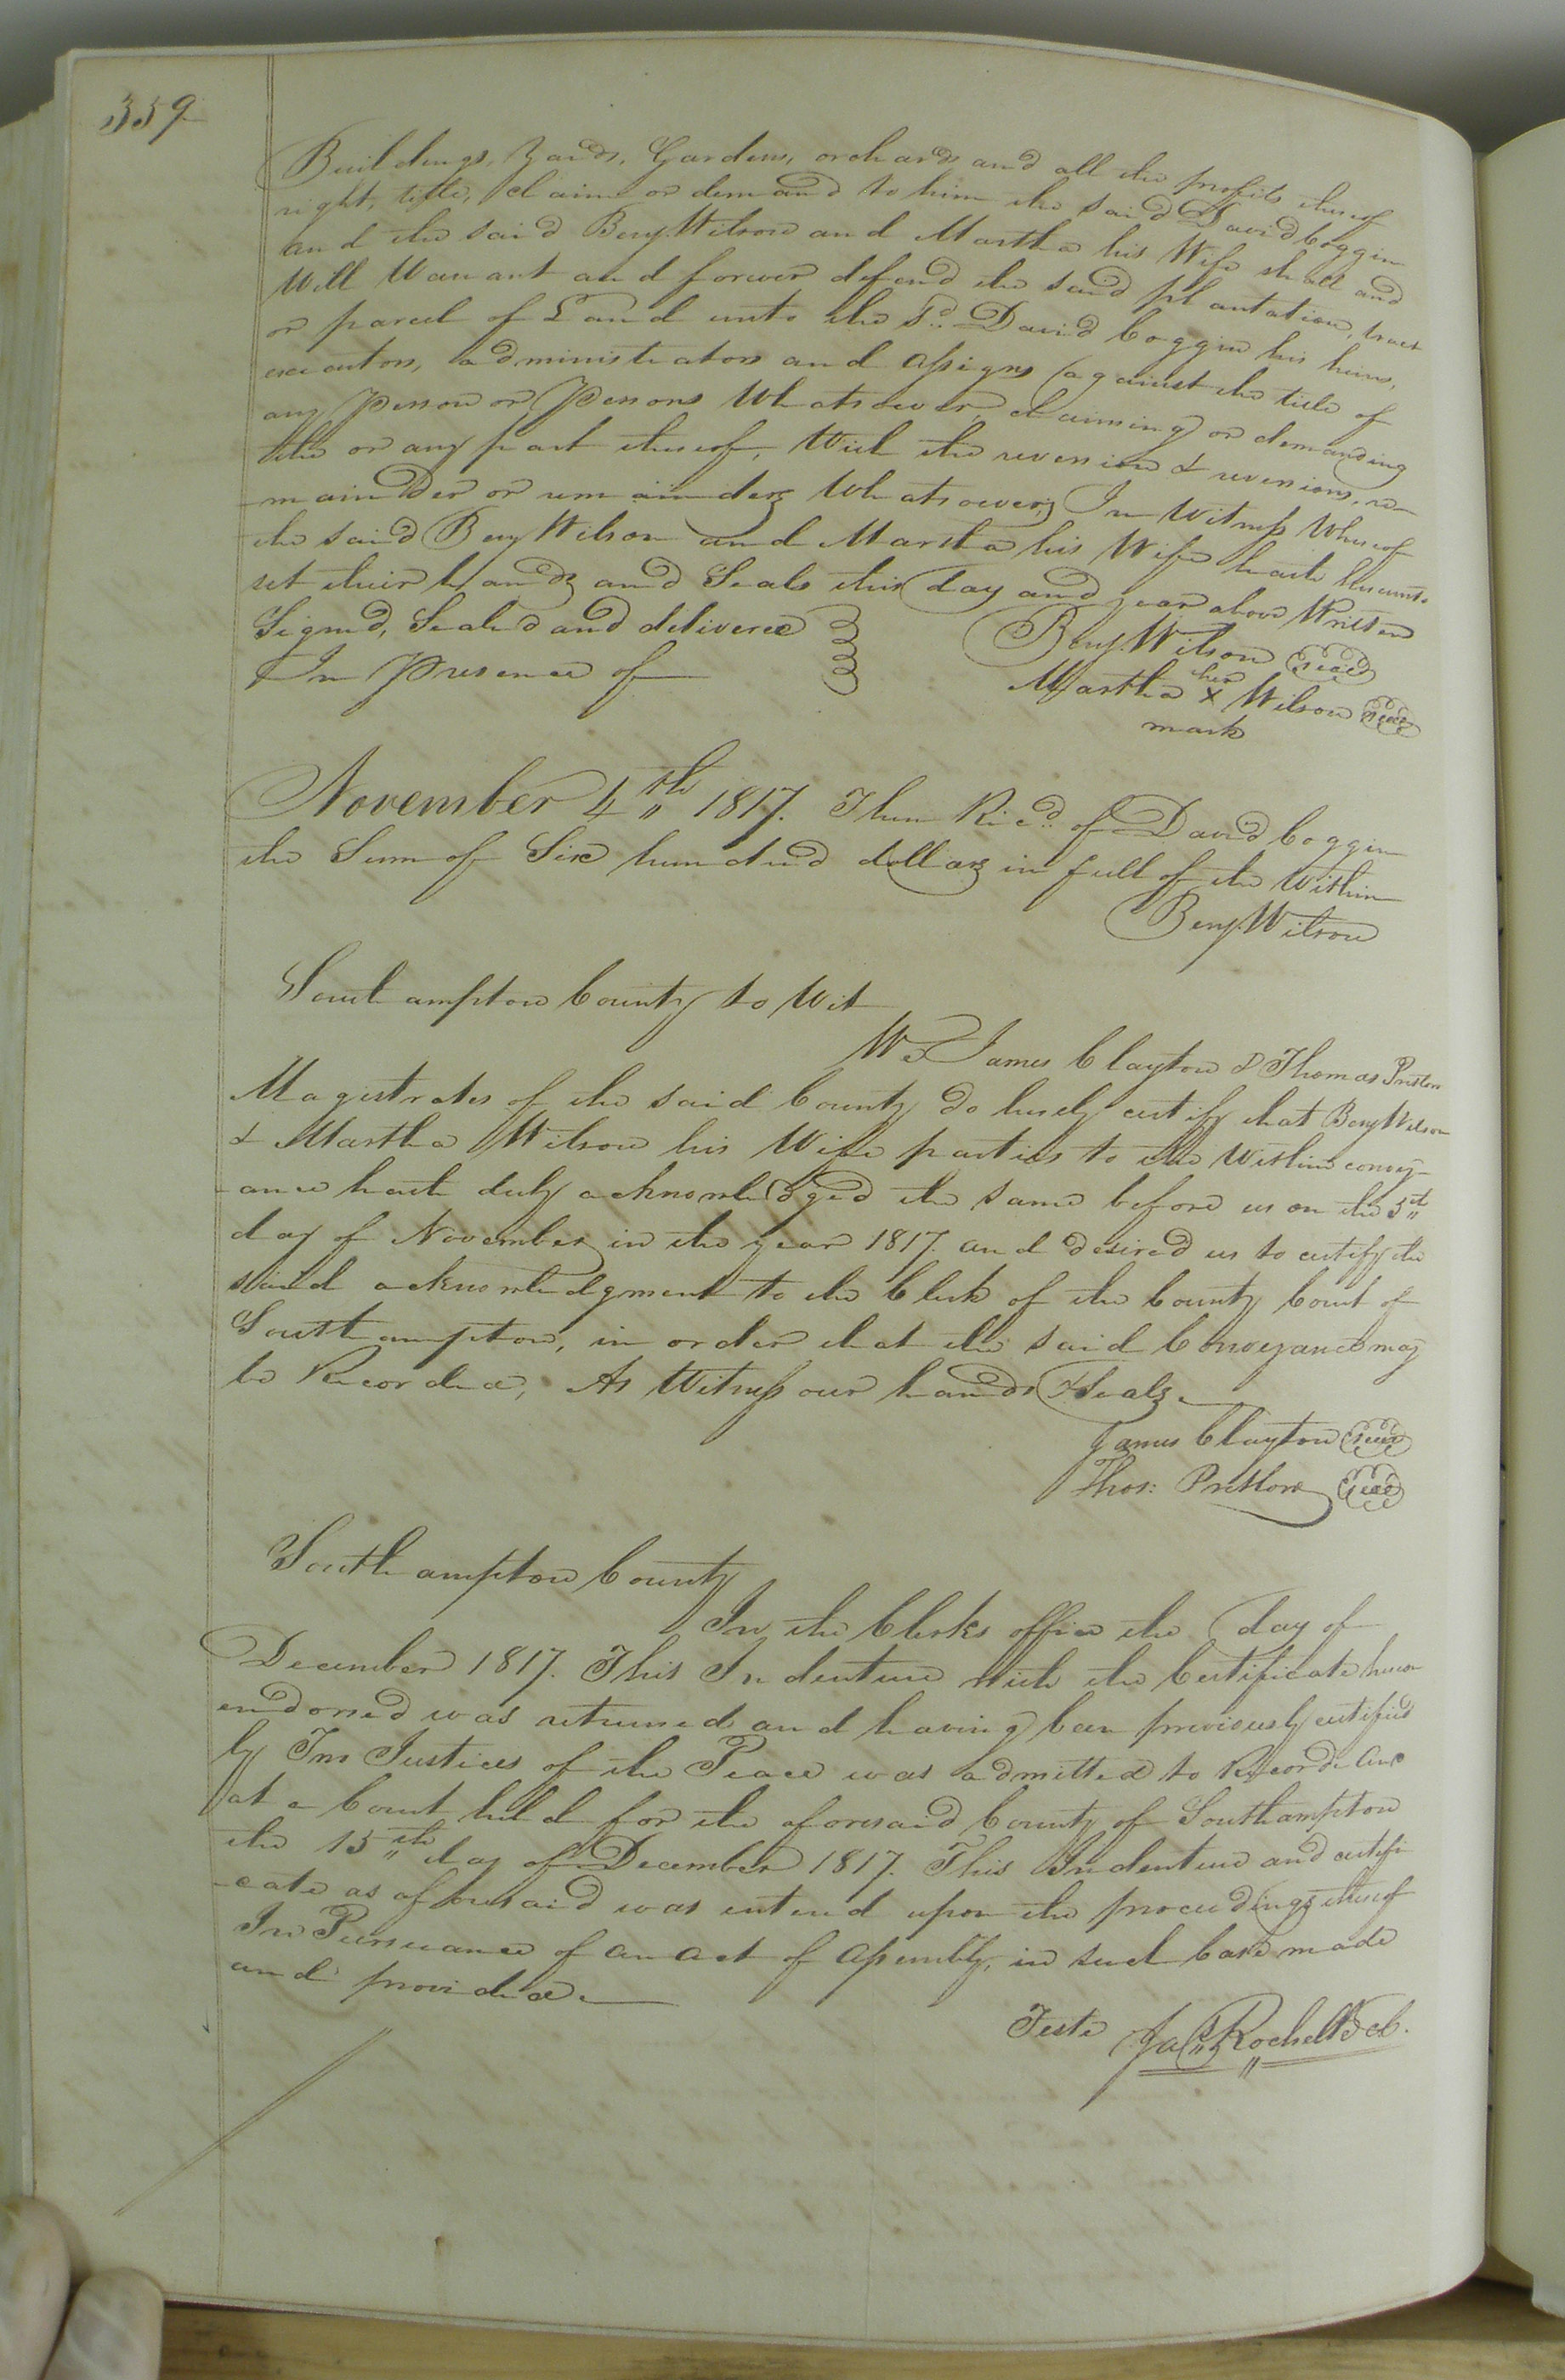 359
Buildings, Yards, Gardens, orchards and all the profits thereof
right, title, claim or demand to him the said David Coggin
and the said Benj. Wilson and Martha his Wife shall and
Will Warrant and forever defend the said plantation, tract
or parcel of Land unto the sd. David Coggin his heirs,
executors, administrators and assigns against the title of
any Person or Persons Whatsoever claiming or demanding
the or any part thereof, With the reversion & reversions, re-
-mainder or remainders Whatsoever, In Witness Whereof
the said Benj Wilson and Martha his Wife hath hereunto
set their hands and Seals this day and year above Written
Signed, Sealed and delivered Benj. Wilson Seal
In Presence of Martha her X Wilson Seal
mark
November 4th 1817. Then Recd. of David Coggin
the Sum of Six hundred dollars in full of the Within
Benj. Wilson
Southampton County to Wit
We James Clayton & Thomas Pretlow
Magistrates of the said County do hereby certify that Benj Wilson
& Martha Wilson his Wife parties to the Within convey-
-ance hath duly acknowledged the same before us on the 5th
day of November in the year 1817. and desired us to certify the
said acknowledgment to the Clerk of the County Court of
Southampton, in order that the said Conveyance may
be Recorded, As Witness our hands & Seals.
James Clayton Seal
Thos: Pretlow Seal
Southampton County
In the Clerks office the day of
December 1817. This Indenture with the Certificate hereon
endorsed was returned and having been previously certified
by Two Justices of the Peace was admitted to Record. And
at a Court held for the aforesaid County of Southampton
the 15th day of December 1817. This Indenture and certifi
-cate as aforesaid was entered upon the proceedings thereof
In Pursuance of an act of Assembly, in such Case made
and provided.
Teste Jas Rochelle Cl.